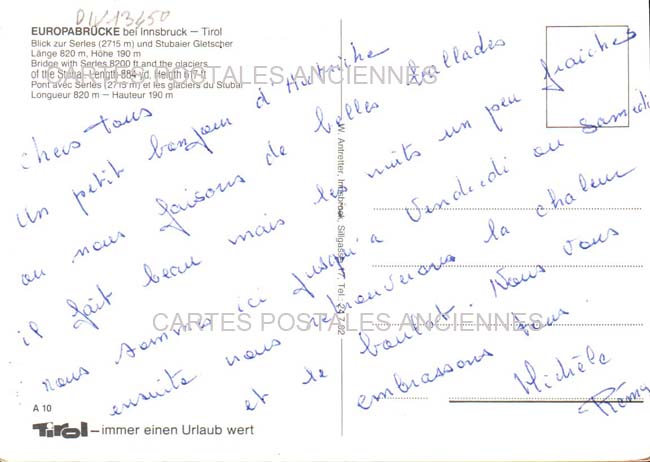 DIV13450
EUROPABRÜCKE bei Innsbruck — Tirol
Blick zur Serles (2715 m) und Stubaier Gletscher
Länge 820 m, Höhe 190 m
Bridge with Serles 8200 ft and the glaciers
of the Stubai Length 884 yd, Heigth 617 ft
Pont avec Serles (2715 m) et les glaciers du Stubai
Longueur 820 m — Hauteur 190 m
CARTES POSTALES ANCIENNES
chers tous
un petit bonjour d'Autriche
ou nous faisons de belles ballades
il fait beau mais les nuits un peu fraiches
nous sommes ici jusqu'a Vendredi ou samedi
ensuite nous retrouverons la chaleur
et le boulot. Nous vous
embrassons tous.
Michèle
Rémy
W. Antretter, Innsbruck, Sillgasse 17, Tel.: 24 7 02
CARTES POSTALES ANCIENNES
A 10
Tirol — immer einen Urlaub wert